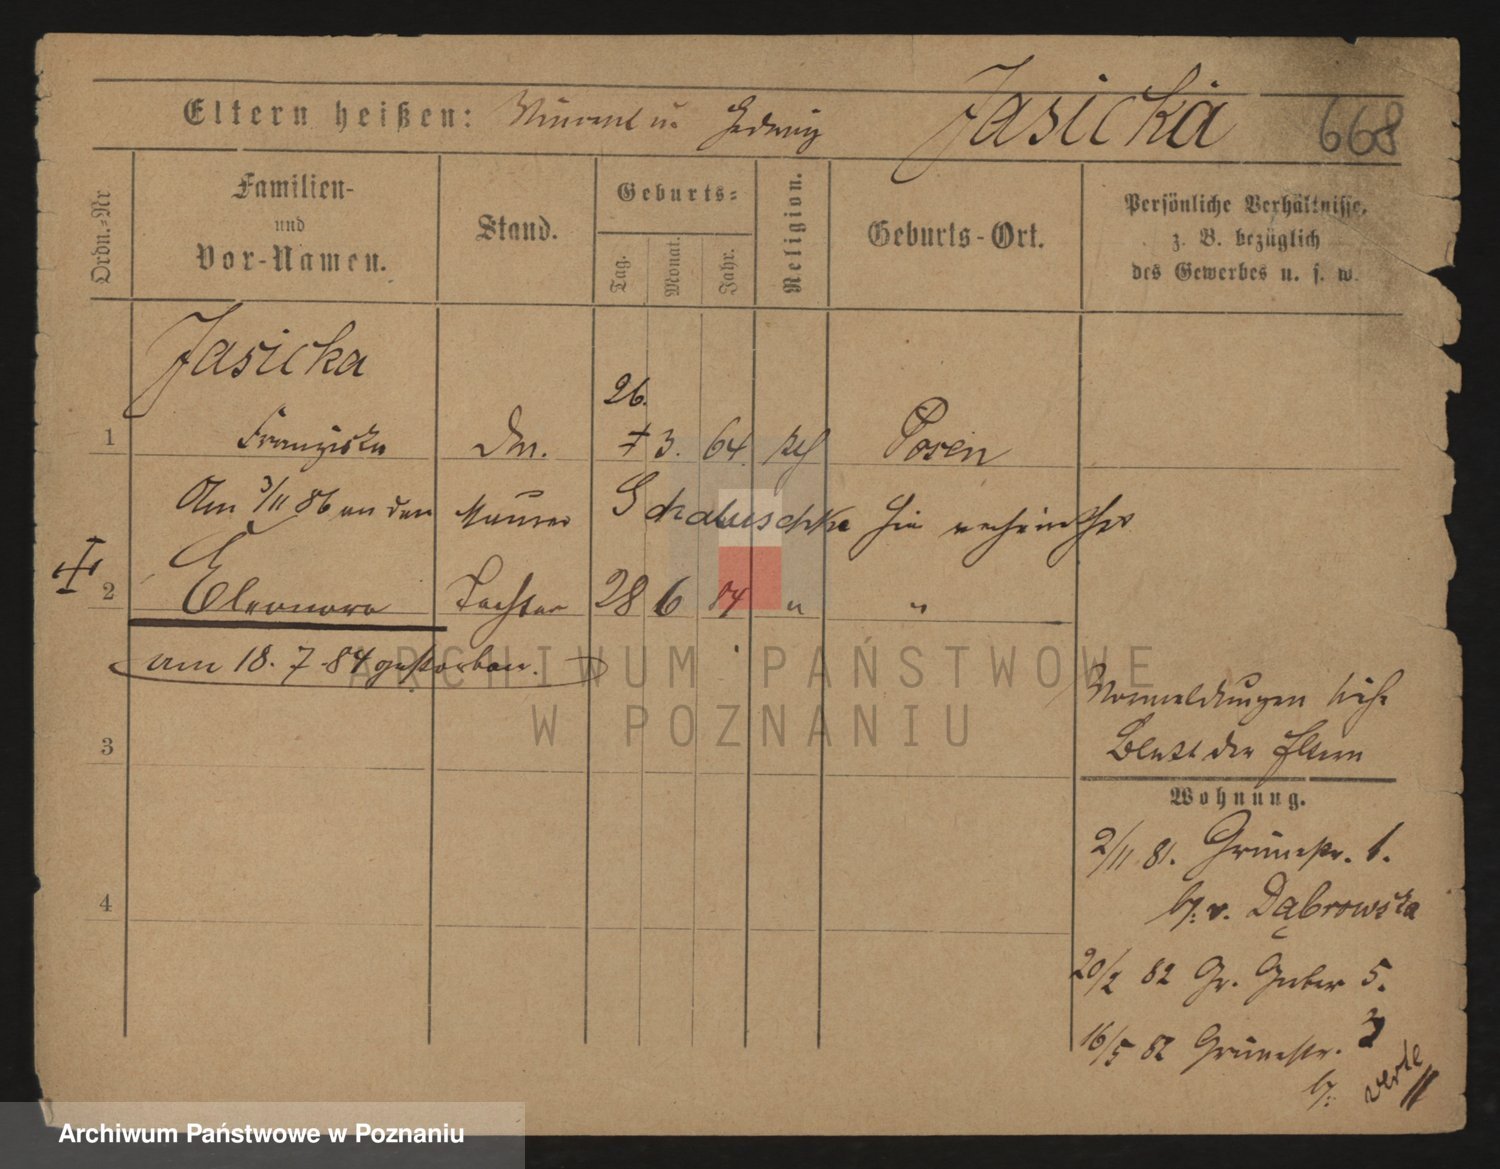 Eltern heißen: Vincent u. Hedwig Jasicka 668
Ordn.-Nr
Familien-
und
Vor-Namen.
Stand.
Geburts-
Tag.
Monat.
Jahr.
Religion.
Geburts-Ort.
Persönliche Verhältnisse,
z. B. bezüglich
des Gewerbes u. s. w.
Jasicka
26.
1 Franziska 3. 64. kth Posen
Am 3/11 86 an den Maurer Schaluschke hie verheirathet
2 Eleonora Tochter 28 6 84 " "
am 18. 7. 84 gestorben.
Vormeldungen siehe
3
Blatt der Eltern
Wohnung.
2/11 81. Grünestr. 1.
4
b/. v. Dąbrowska
20/2 82 Gr. Gerber 5.
16/5 82 Grünestr. 3
b/.
verte
ARCHIWUM PAŃSTWOWE
W POZNANIU
Archiwum Państwowe w Poznaniu